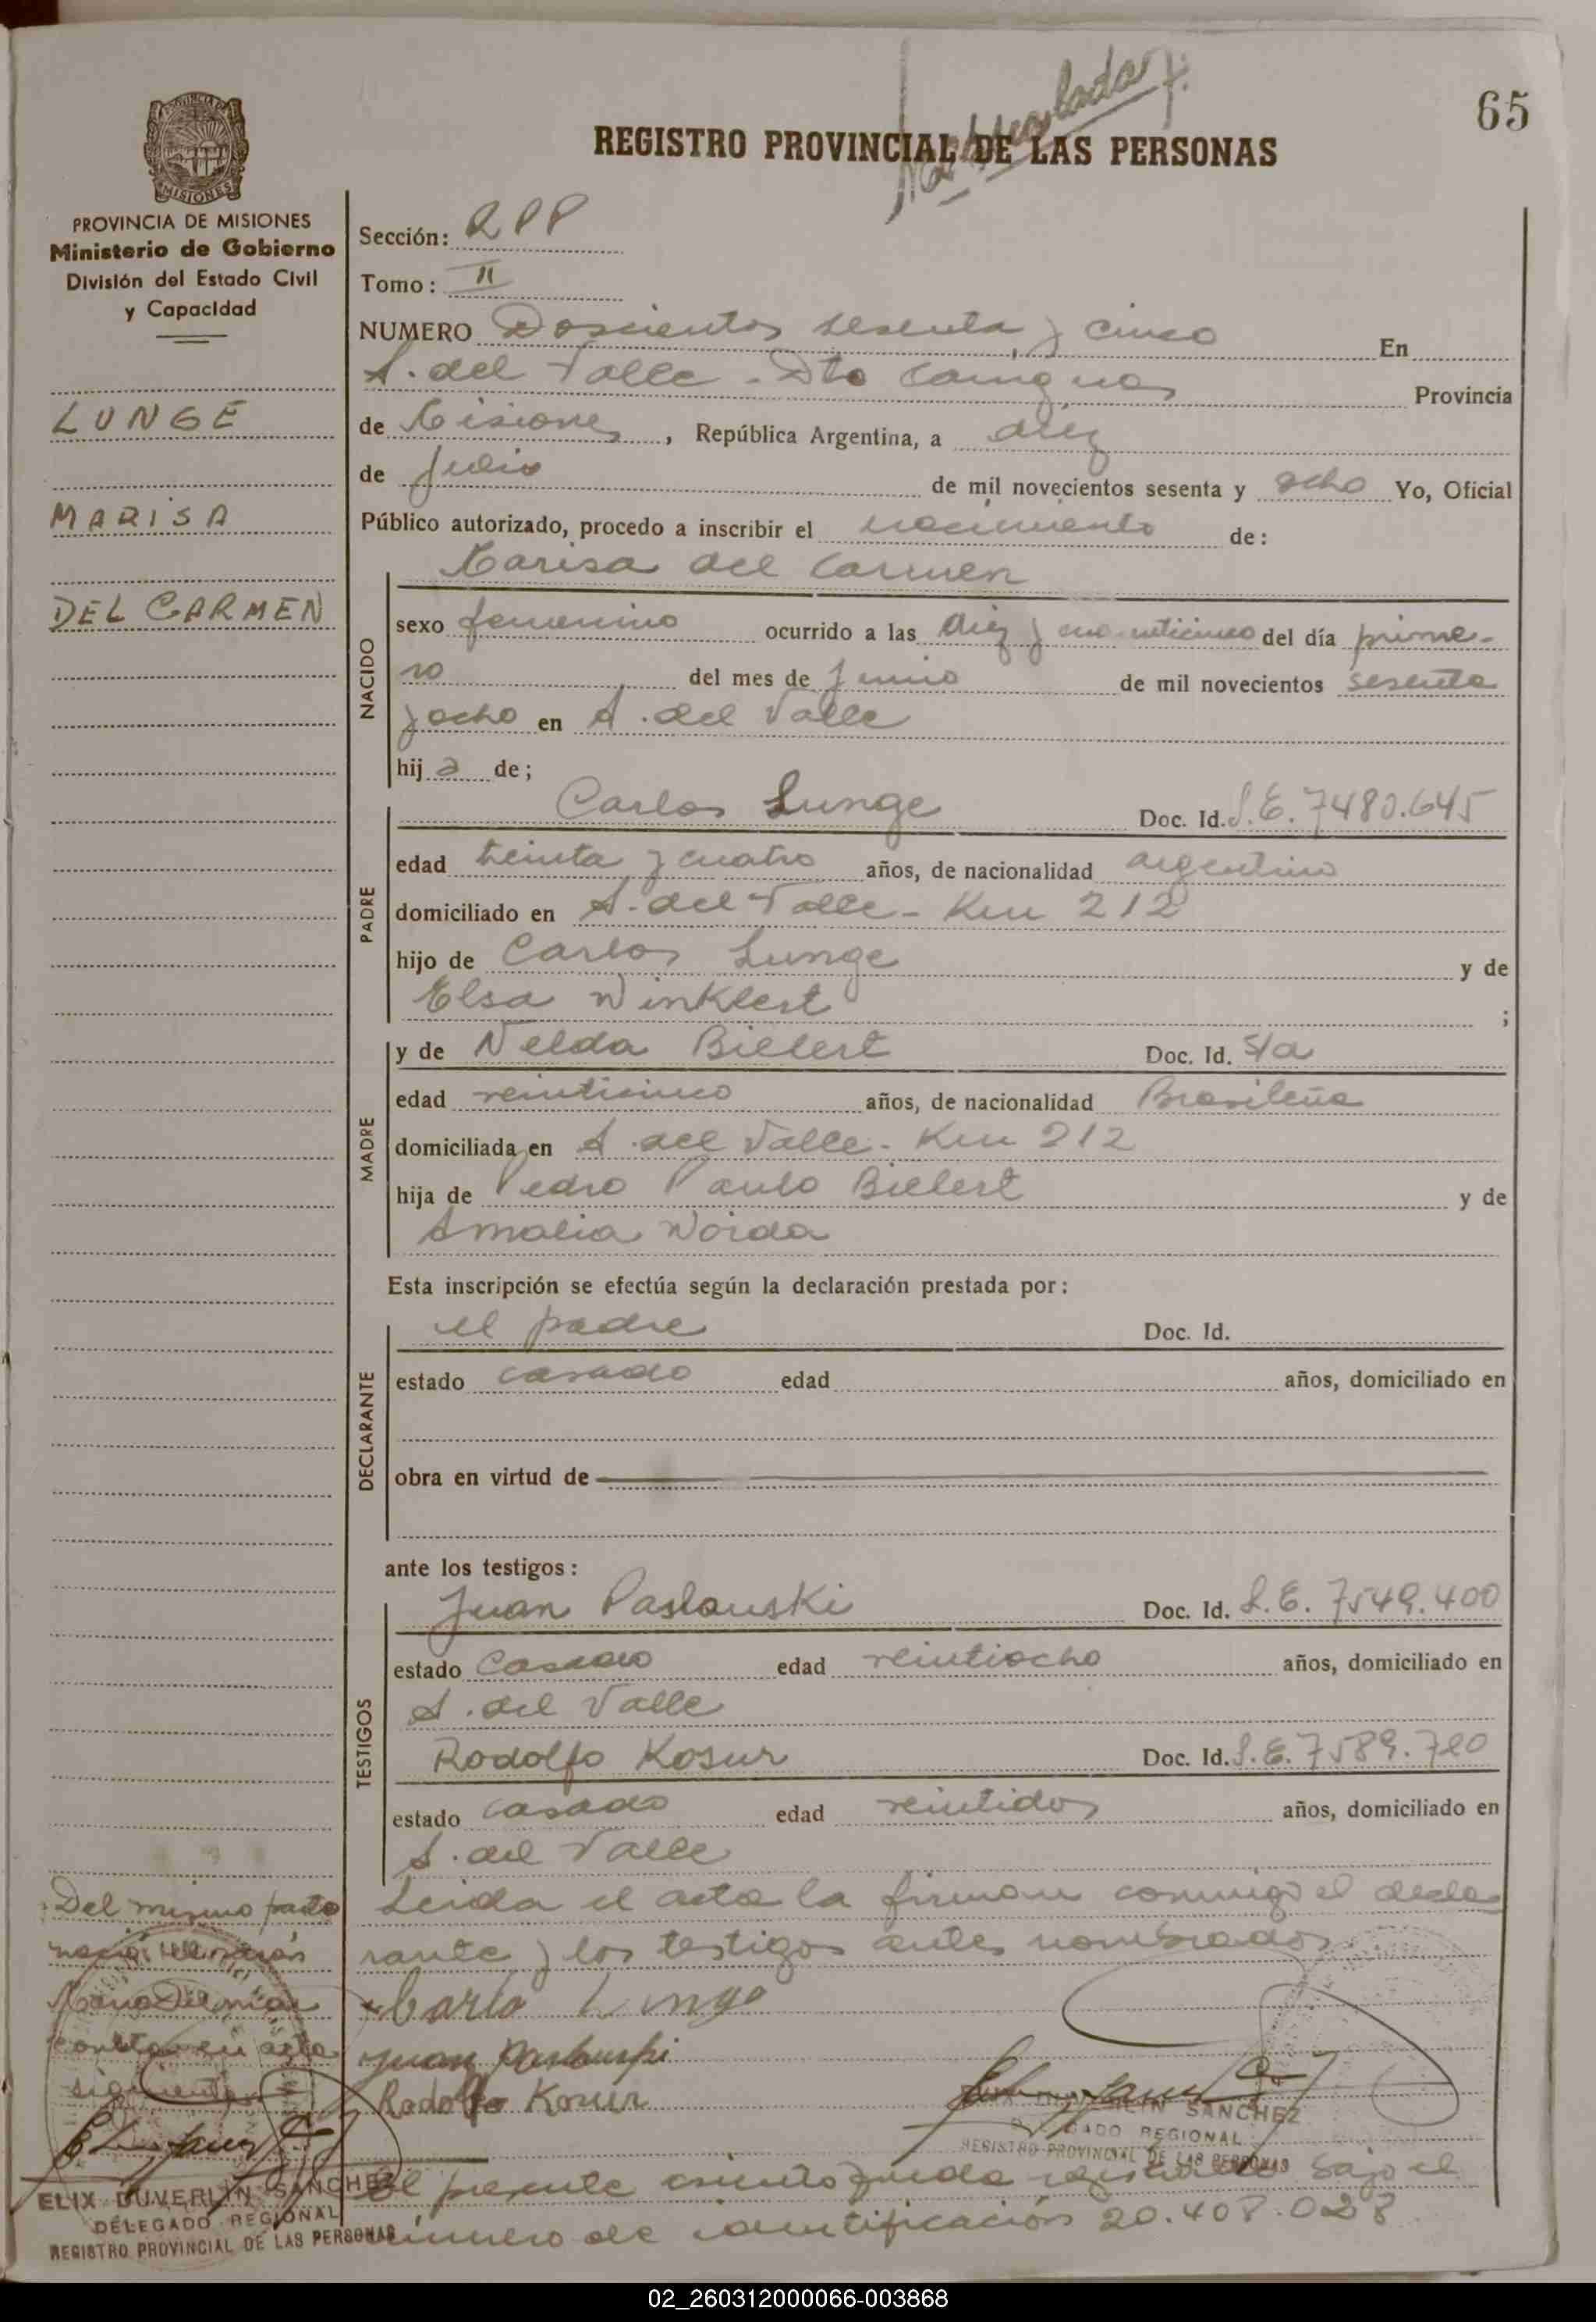 65
REGISTRO PROVINCIAL DE LAS PERSONAS
PROVINCIA DE MISIONES
Ministerio de Gobierno
División del Estado Civil
y Capacidad
LUNGE
MARISA
DEL CARMEN
Sección: RPP
Tomo: II
NUMERO Doscientos sesenta y cinco En
A. del Valle - Dto Cainguas Provincia
de Misiones, República Argentina, a diez
de Julio de mil novecientos sesenta y ocho Yo, Oficial
Público autorizado, procedo a inscribir el nacimiento de:
Marisa del Carmen
NACIDO
sexo femenino ocurrido a las diez y del día prime-
ro del mes de Junio de mil novecientos sesenta
y ocho en A. del Valle
hija de;
PADRE
Carlos Lunge Doc. Id. L.E. 7480.645
edad treinta y cuatro años, de nacionalidad argentino
domiciliado en A. del Valle - Km 212
hijo de Carlos Lunge y de
Elsa Winklert ;
MADRE
y de Nelda Bielert Doc. Id. S/a
edad veinticinco años, de nacionalidad Brasileña
domiciliada en A. del Valle - Km 212
hija de Pedro Paulo Bielert y de
Amalia Woida
Esta inscripción se efectúa según la declaración prestada por:
DECLARANTE
el padre Doc. Id.
estado casado edad años, domiciliado en
obra en virtud de
ante los testigos:
TESTIGOS
Juan Paslauski Doc. Id. L.E. 7549.400
estado Casado edad veintiocho años, domiciliado en
A. del Valle
Rodolfo Kosur Doc. Id. L.E. 7589.720
estado casado edad veintidos años, domiciliado en
A. del Valle
Leida el acta la firman conmigo el decla
rante y los testigos antes nombrados.
Carlo Lunge
Juan Paslauski
Rodolfo Kosur
SANCHEZ
DELEGADO REGIONAL
REGISTRO PROVINCIAL DE LAS PERSONAS
El presente asiento queda registrado bajo el
número de identificación 20.408.028
Del mismo parto
nació un varón
consta en acta
siguiente
ELIX DUVERLIN SANCHEZ
DELEGADO REGIONAL
REGISTRO PROVINCIAL DE LAS PERSONAS
02_260312000066-003868